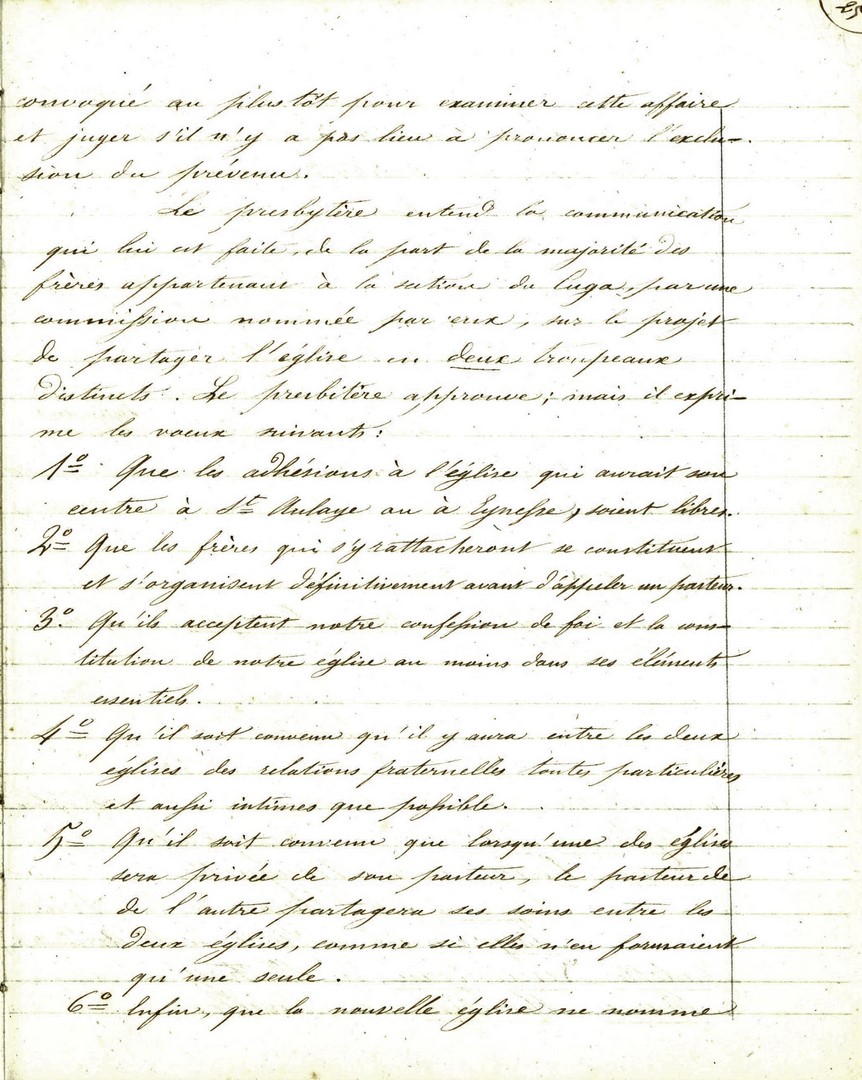 25
convoqué au plustôt pour examiner cette affaire
et juger s'il n'y a pas lieu à prononcer l'exclu-
sion du prévenu.
Le presbytère entend la communication
qui lui est faite, de la part de la majorité des
frères appartenant à la section du Cuga, par une
commission nommée par eux, sur le projet
de partager l'église en deux troupeaux
distincts. Le presbitère approuve; mais il expri-
me les voeux suivants:
1º Que les adhésions à l'église qui aurait son
centre à St Aulaye ou à Eynesse, soient libres.
2º Que les frères qui s'y rattacheront se constituent
et s'organisent définitivement avant d'appeler un pasteur.
3º. Qu'ils acceptent notre confession de foi et la cons-
titution de notre église au moins dans ses éléments
essentiels.
4º Qu'il soit convenu qu'il y aura entre les deux
églises des relations fraternelles toutes particulières
et aussi intimes que possible.
5º Qu'il soit convenu que lorsqu'une des églises
sera privée de son pasteur, le pasteur de
de l'autre partagera ses soins entre les
deux églises, comme si elles n'en formaient
qu'une seule.
6º Enfin, que la nouvelle église ne nomme